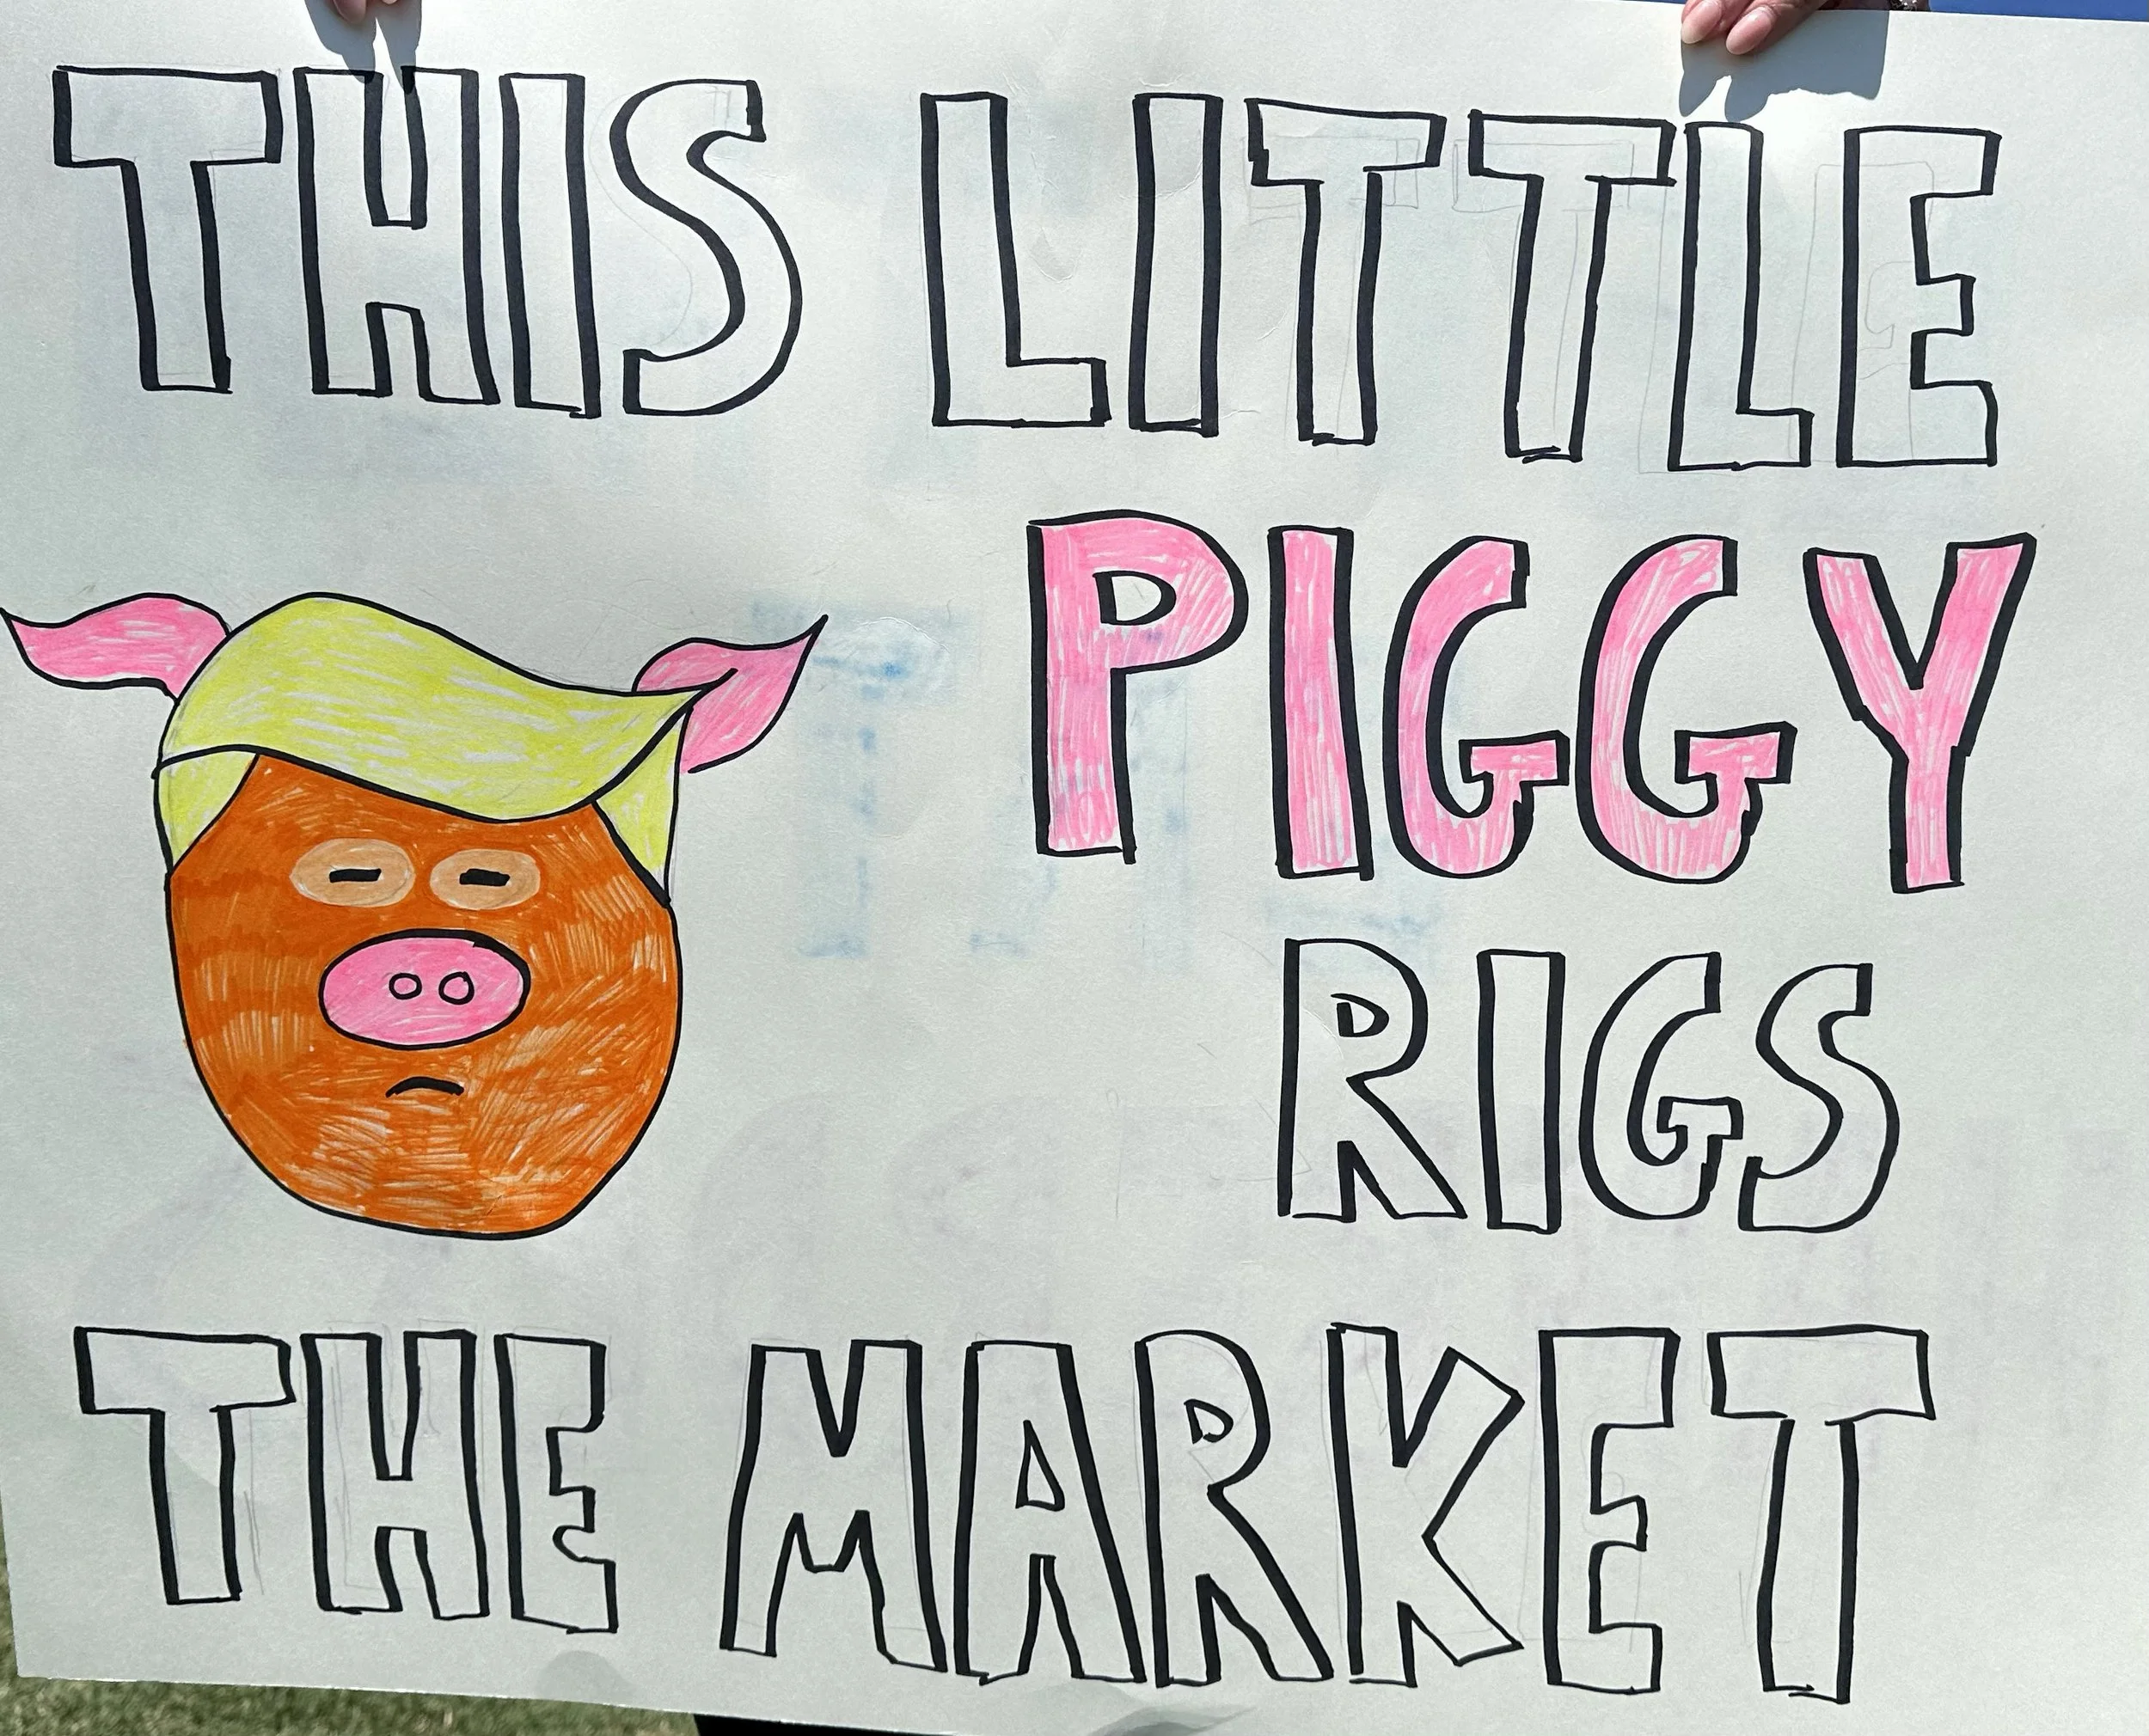 THIS LITTLE
PIGGY
RIGS
THE MARKET